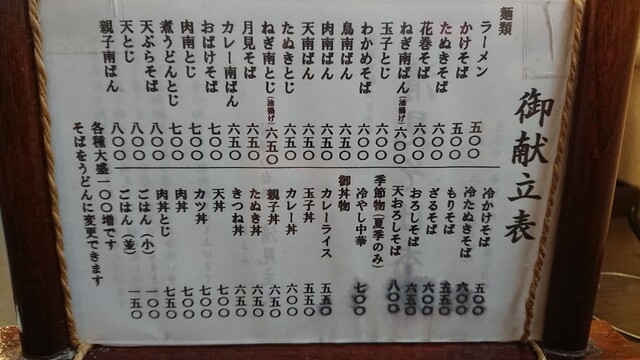 御献立表
麺類
ラーメン 五〇〇
かけそば 五〇〇
たぬきそば 六〇〇
花巻そば 六〇〇
ねぎ南ばん(油揚げ) 六〇〇
玉子とじ 六〇〇
わかめそば 六〇〇
鳥南ばん 六五〇
肉南ばん 六五〇
天南ばん 六五〇
たぬきとじ 六五〇
ねぎ南とじ(油揚げ) 六五〇
月見そば 六五〇
カレー南ばん 六五〇
おばけそば 七〇〇
肉南とじ 七〇〇
煮うどんとじ 七〇〇
天ぷらそば 八〇〇
天とじ 八〇〇
親子南ばん 八〇〇
冷かけそば 五〇〇
冷たぬきそば 六〇〇
もりそば 五五〇
ざるそば 六〇〇
おろしそば 六五〇
天おろしそば 八〇〇
季節物(夏季のみ)
冷やし中華 七〇〇
御丼物
カレーライス 五五〇
玉子丼 五五〇
カレー丼 六〇〇
親子丼 六五〇
たぬき丼 六五〇
きつね丼 六五〇
天丼 七〇〇
カツ丼 七〇〇
肉丼 七〇〇
肉丼とじ 七五〇
ごはん(小) 一〇〇
ごはん(並) 一五〇
各種大盛一〇〇増です
そばをうどんに変更できます